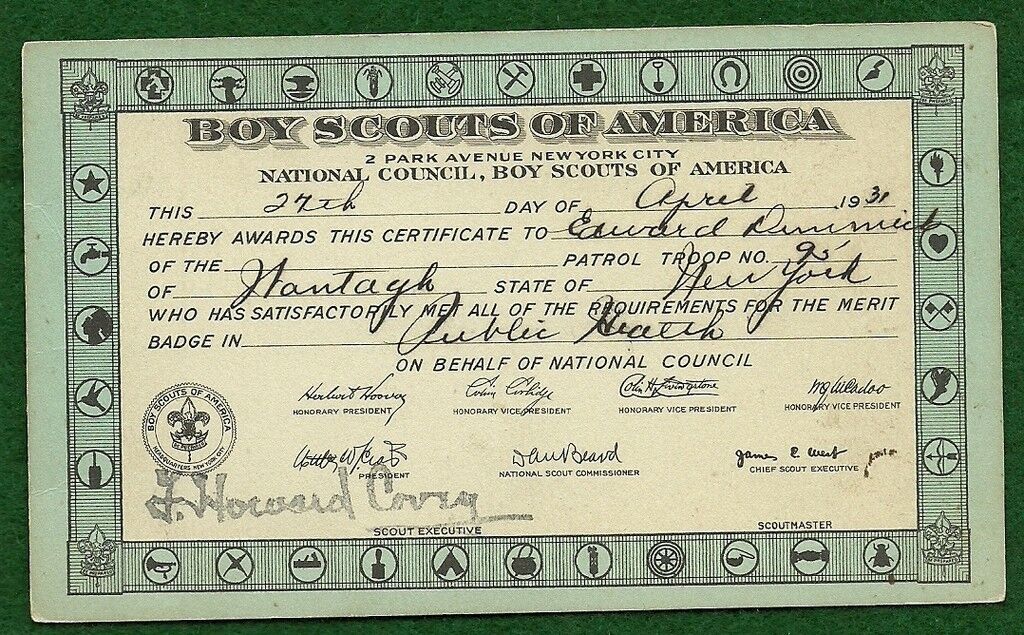 BOY SCOUTS OF AMERICA
2 PARK AVENUE NEW YORK CITY
NATIONAL COUNCIL, BOY SCOUTS OF AMERICA
THIS 27th DAY OF April 1931
HEREBY AWARDS THIS CERTIFICATE TO Edward Dimmick
OF THE PATROL TROOP NO. 95
OF Wantagh STATE OF New York
WHO HAS SATISFACTORILY MET ALL OF THE REQUIREMENTS FOR THE MERIT
BADGE IN Public Health
ON BEHALF OF NATIONAL COUNCIL
Herbert Hoover Calvin Coolidge Colin H. Livingstone W G McAdoo
HONORARY PRESIDENT HONORARY VICE PRESIDENT HONORARY VICE PRESIDENT HONORARY VICE PRESIDENT
BOY SCOUTS OF AMERICA
HEADQUARTERS NEW YORK CITY
Walter W. Head Dan Beard James E. West
PRESIDENT NATIONAL SCOUT COMMISSIONER CHIEF SCOUT EXECUTIVE
J. Howard Covey
SCOUT EXECUTIVE SCOUTMASTER